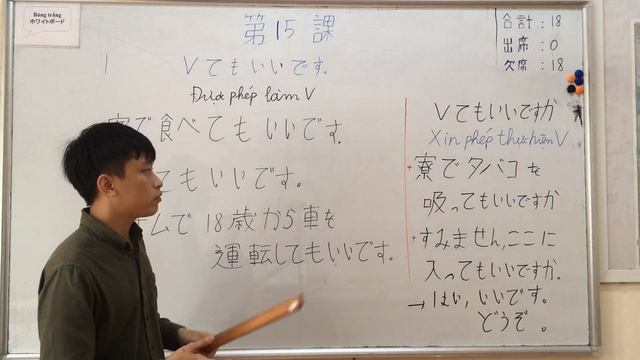 Bảng trắng
ホワイトボード
第15課
合計 : 18
出席 : 0
欠席 : 18
1 Vてもいいです.
Được phép làm V
寮で食べてもいいです.
てもいいです.
ムで 18歳から車を
運転してもいいです.
Vてもいいですか
Xin phép thực hiện V
+ 寮でタバコを
吸ってもいいですか
+ すみません,ここに
入ってもいいですか.
→ はい, いいです。
どうぞ 。